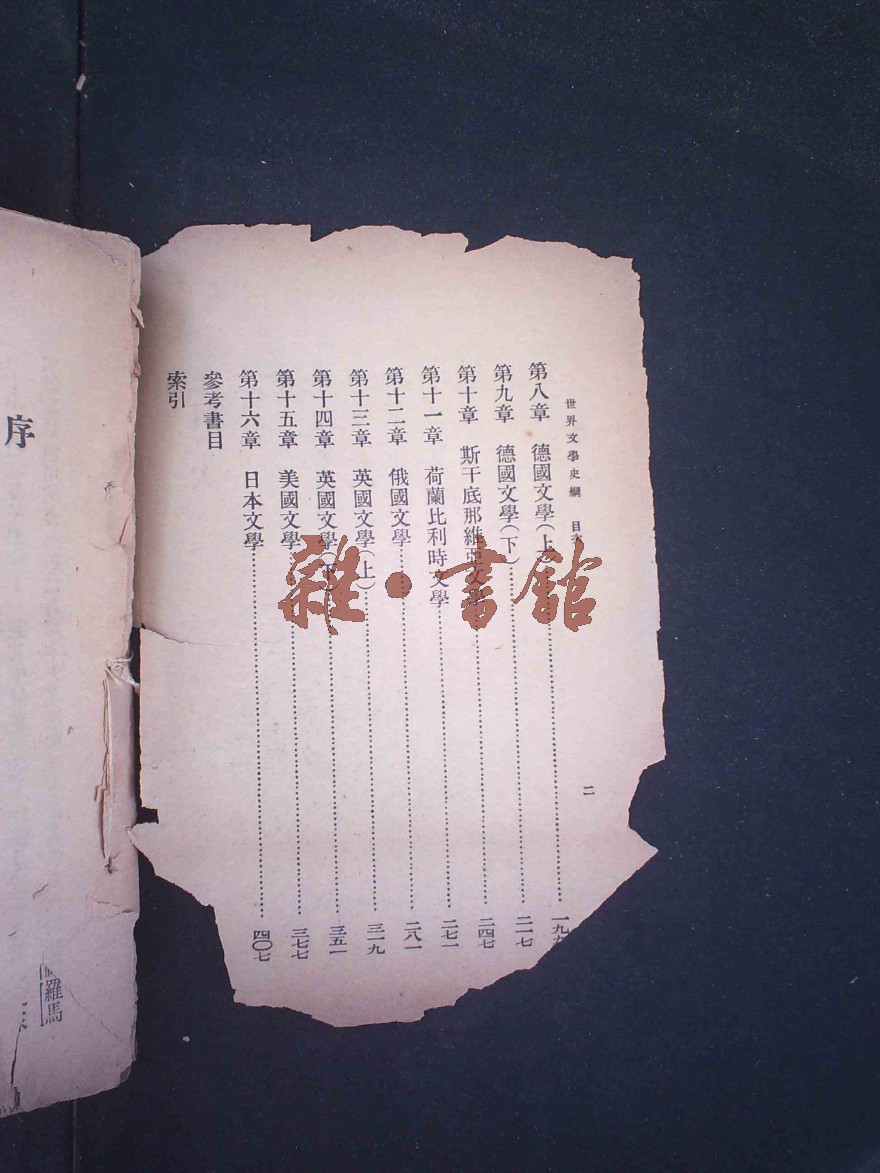 世界文學史綱 目次
二
第八章 德國文學(上)……一九
第九章 德國文學(下)……二一七
第十章 斯干底那維亞文學……二四七
第十一章 荷蘭比利時文學……二七一
第十二章 俄國文學……二八一
第十三章 英國文學(上)……三一九
第十四章 英國文學(下)……三五一
第十五章 美國文學……三七七
第十六章 日本文學……四〇七
參考書目
索引
雜·書館
序
羅馬